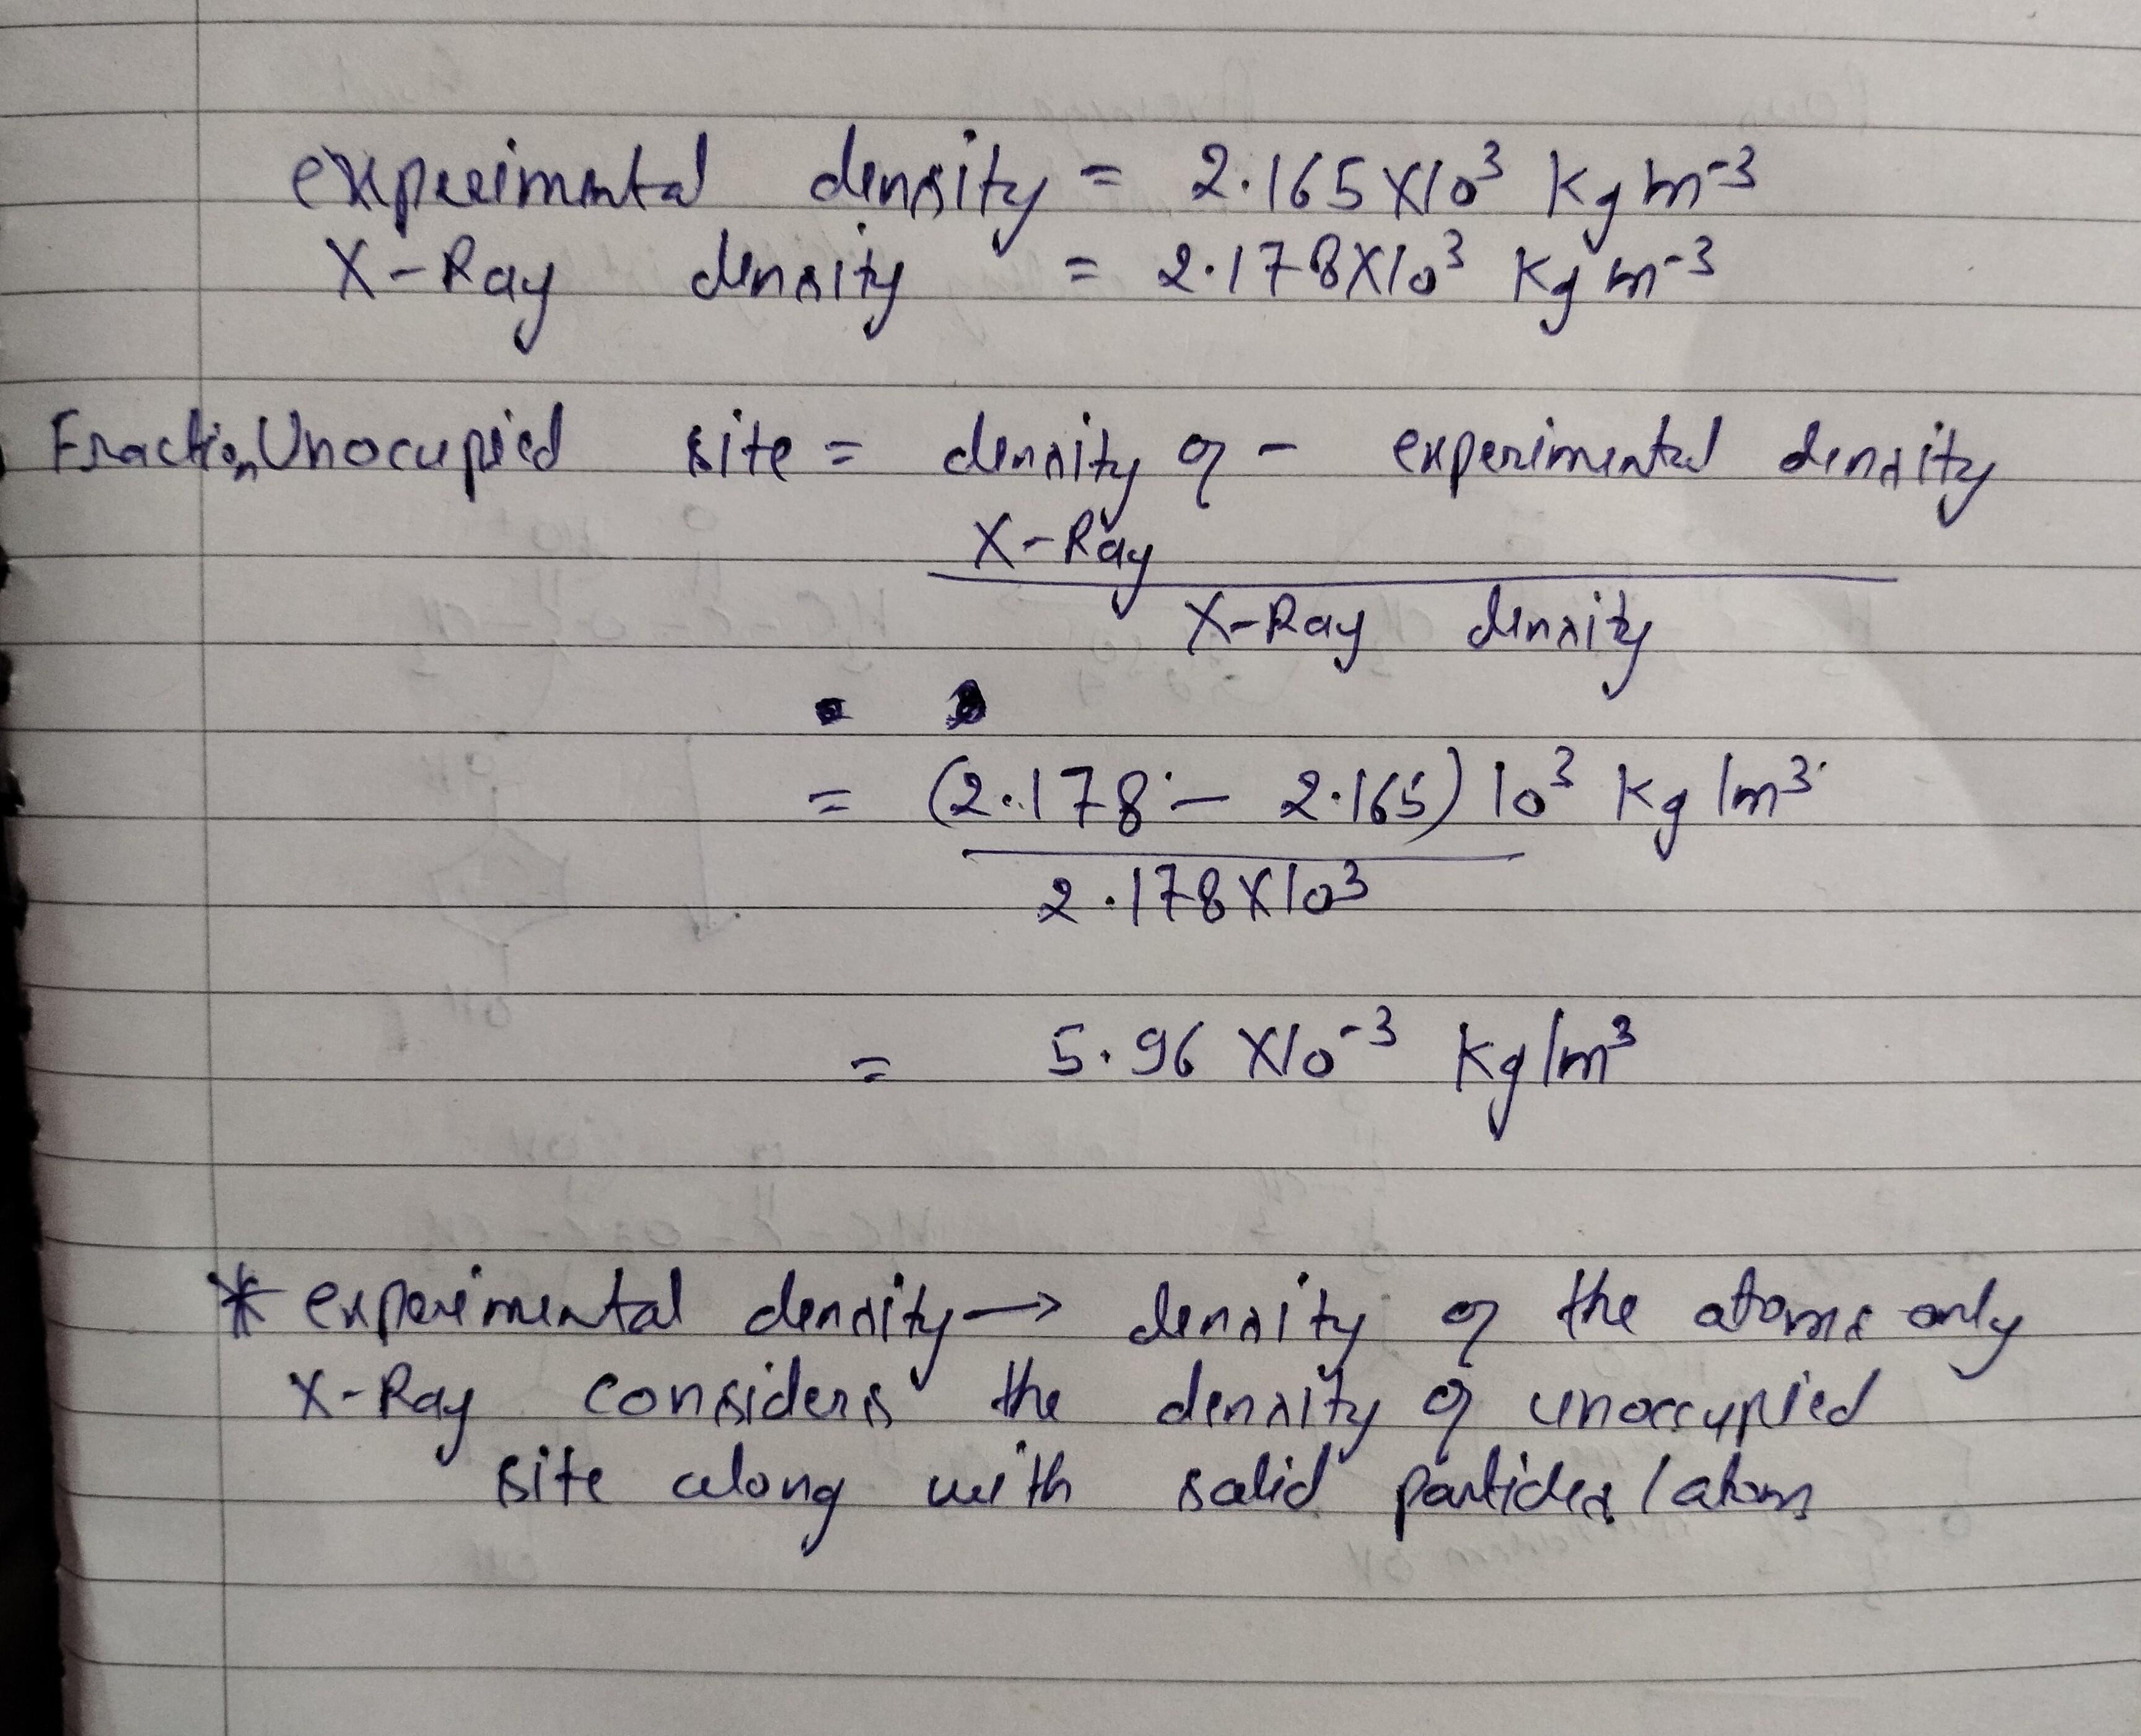 experimental density = 2.165 X10³ Kg m⁻³
X-Ray density = 2.178X10³ Kg m⁻³
Fraction Unocupied site = density of - experimental density
X-Ray
X-Ray density
= (2.178 - 2.165) 10³ Kg/m³
2.178X10³
= 5.96 X10⁻³ Kg/m³
* experimental density → density of the atoms only
X-Ray considers the density of unoccupied
site along with solid particles/atoms